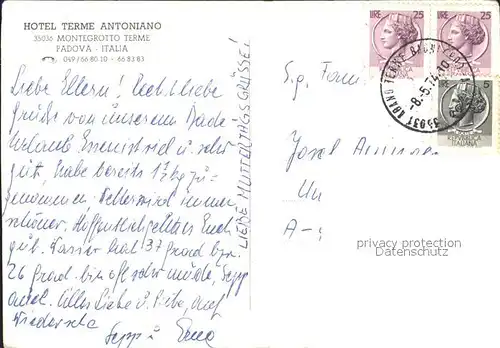 HOTEL TERME ANTONIANO
35036 MONTEGROTTO TERME
PADOVA - ITALIA
049/66 80 10 - 66 83 83
Liebe Eltern! Recht liebe
Grüße von unserem Bade
Urlaub Essen ist viel u. sehr
gut, habe bereits 1½ kg zu-
genommen, Wetter wird immer
schöner. Hoffentlich geht es Euch
gut. Wasser hat 37 Grad bzw.
26 Grad. bin oft sehr müde, Sepp
auch. Alles Liebe u. Bussi, auf
Wiedersehn
Sepp u.
LIEBE MUTTERTAGSGRÜSSE!
LIRE 25
LIRE 25
LIRE 5
ITALIANA
35031 ABANO TERME
-8.5.74.10
Fam.
Josef
A-
privacy protection
Datenschutz